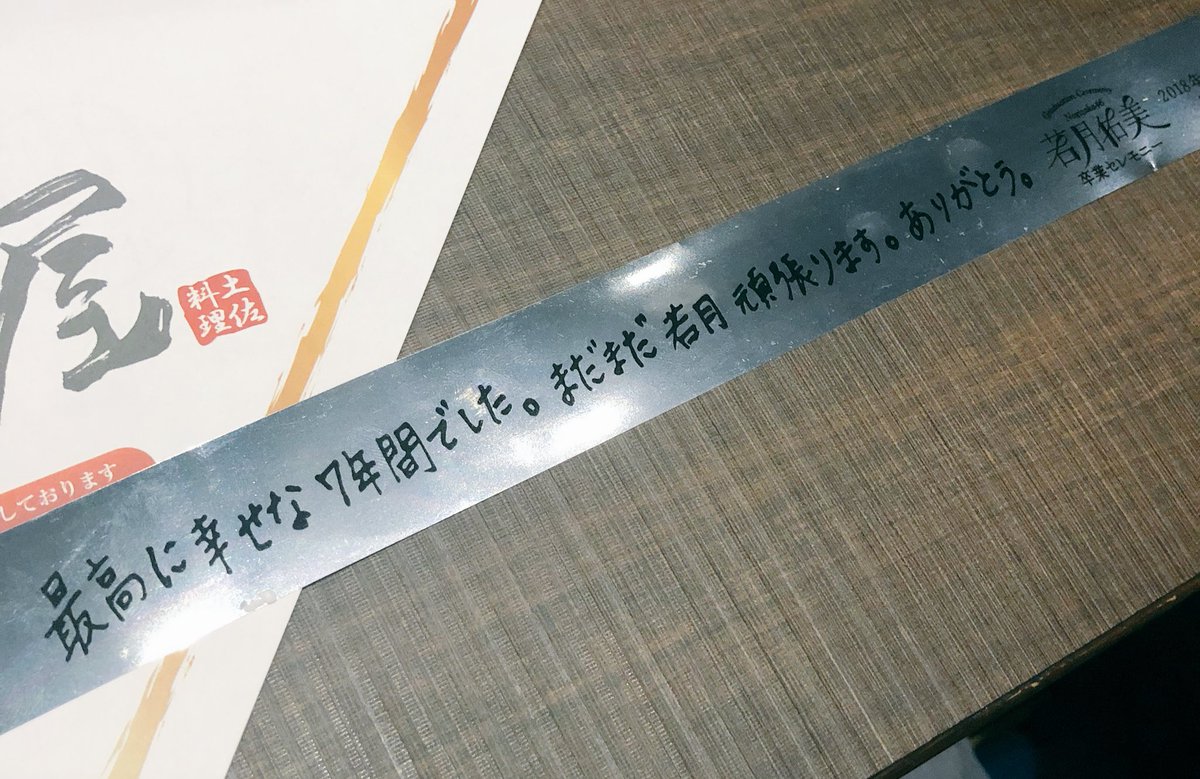 屋
土佐
料理
しております
最高に幸せな7年間でした。まだまだ若月頑張ります。ありがとう。
Graduation Ceremony
Nogizaka46
若月佑美
卒業セレモニー
2018年